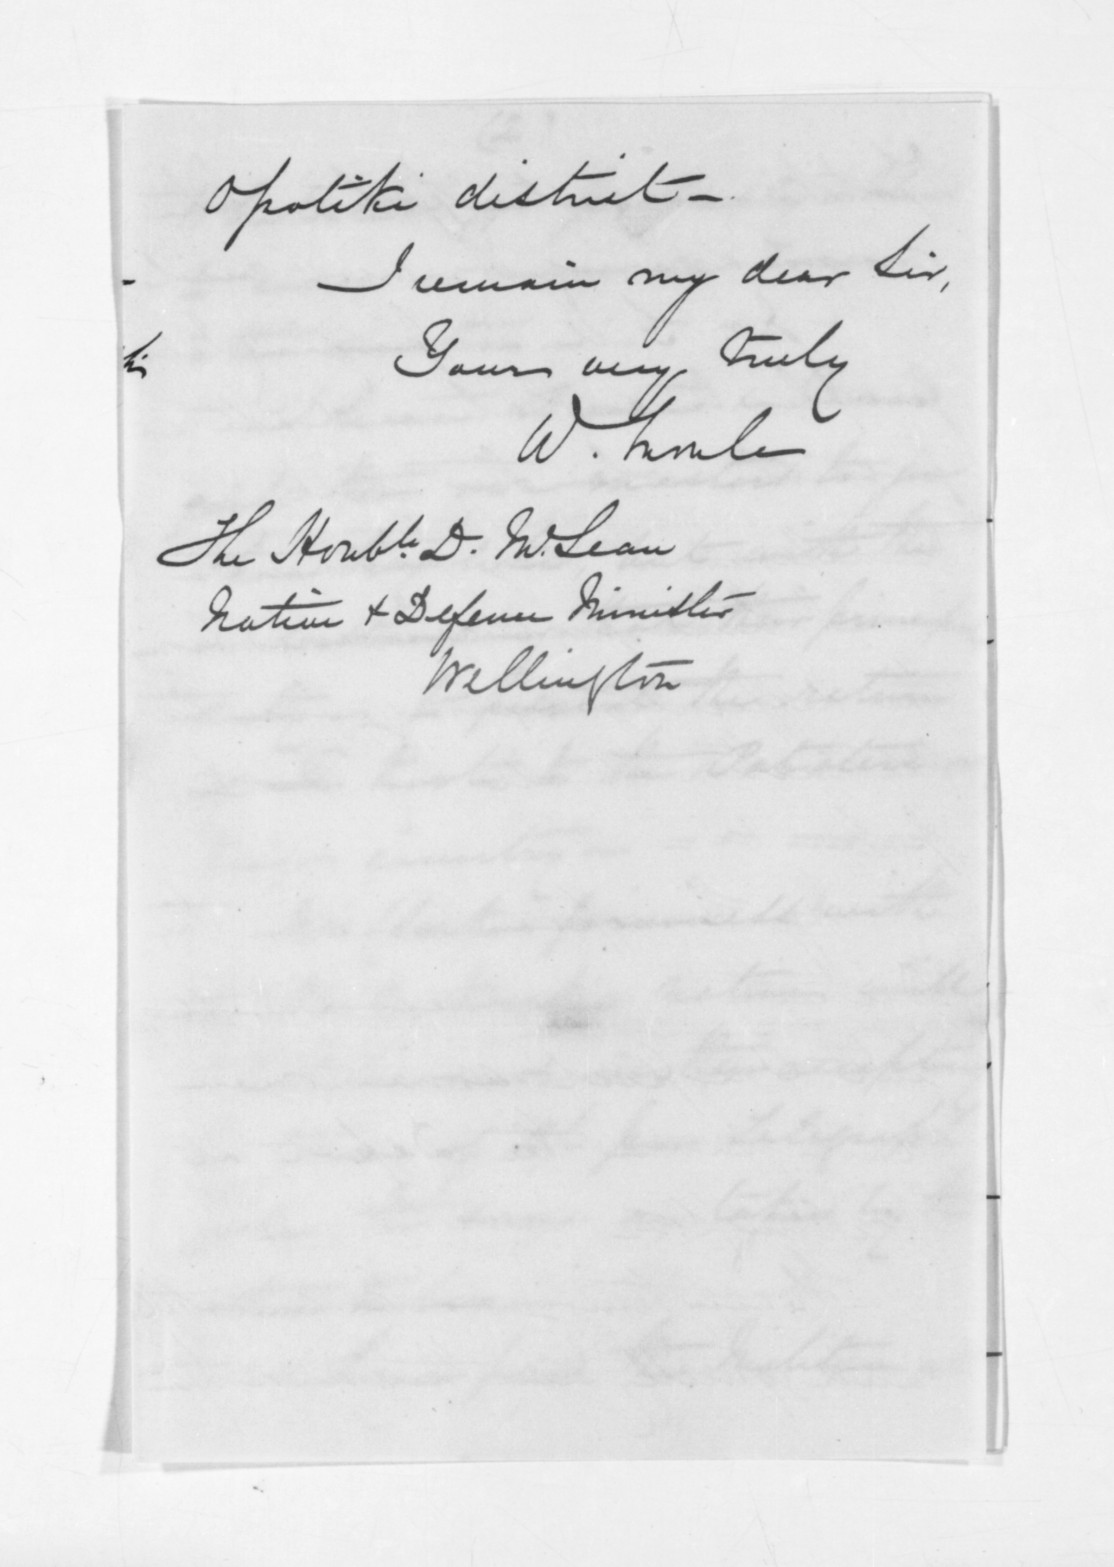 Opotiki district —
I remain my dear Sir,
Yours very truly
W. Moule
The Honble. D. McLean
Native & Defence Minister
Wellington